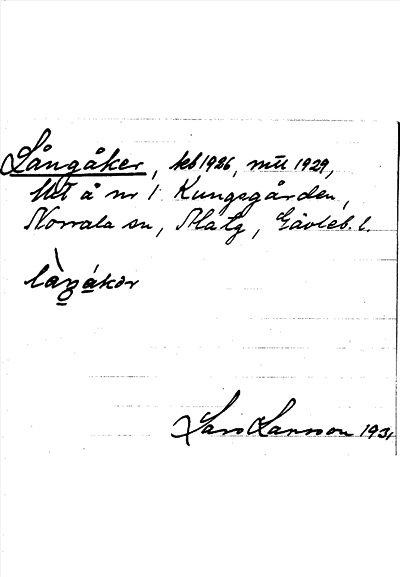 Långåker, kb 1926, mtl 1929,
å nr 1 Kungsgården,
Norrala sn, Ala tg, Gävleb. l.
làŋákər
Lars Larsson 1931